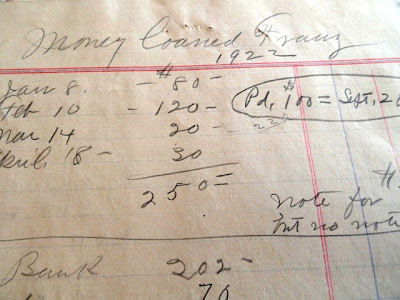 Money loaned Franz
1922
Jan 8. - $80 -
Feb 10 - 120 - Pd, $100 = Sept. 20
Mar 14 20 -
April 18 - 30
250 =
note for
but no note
Bank 202 -
70